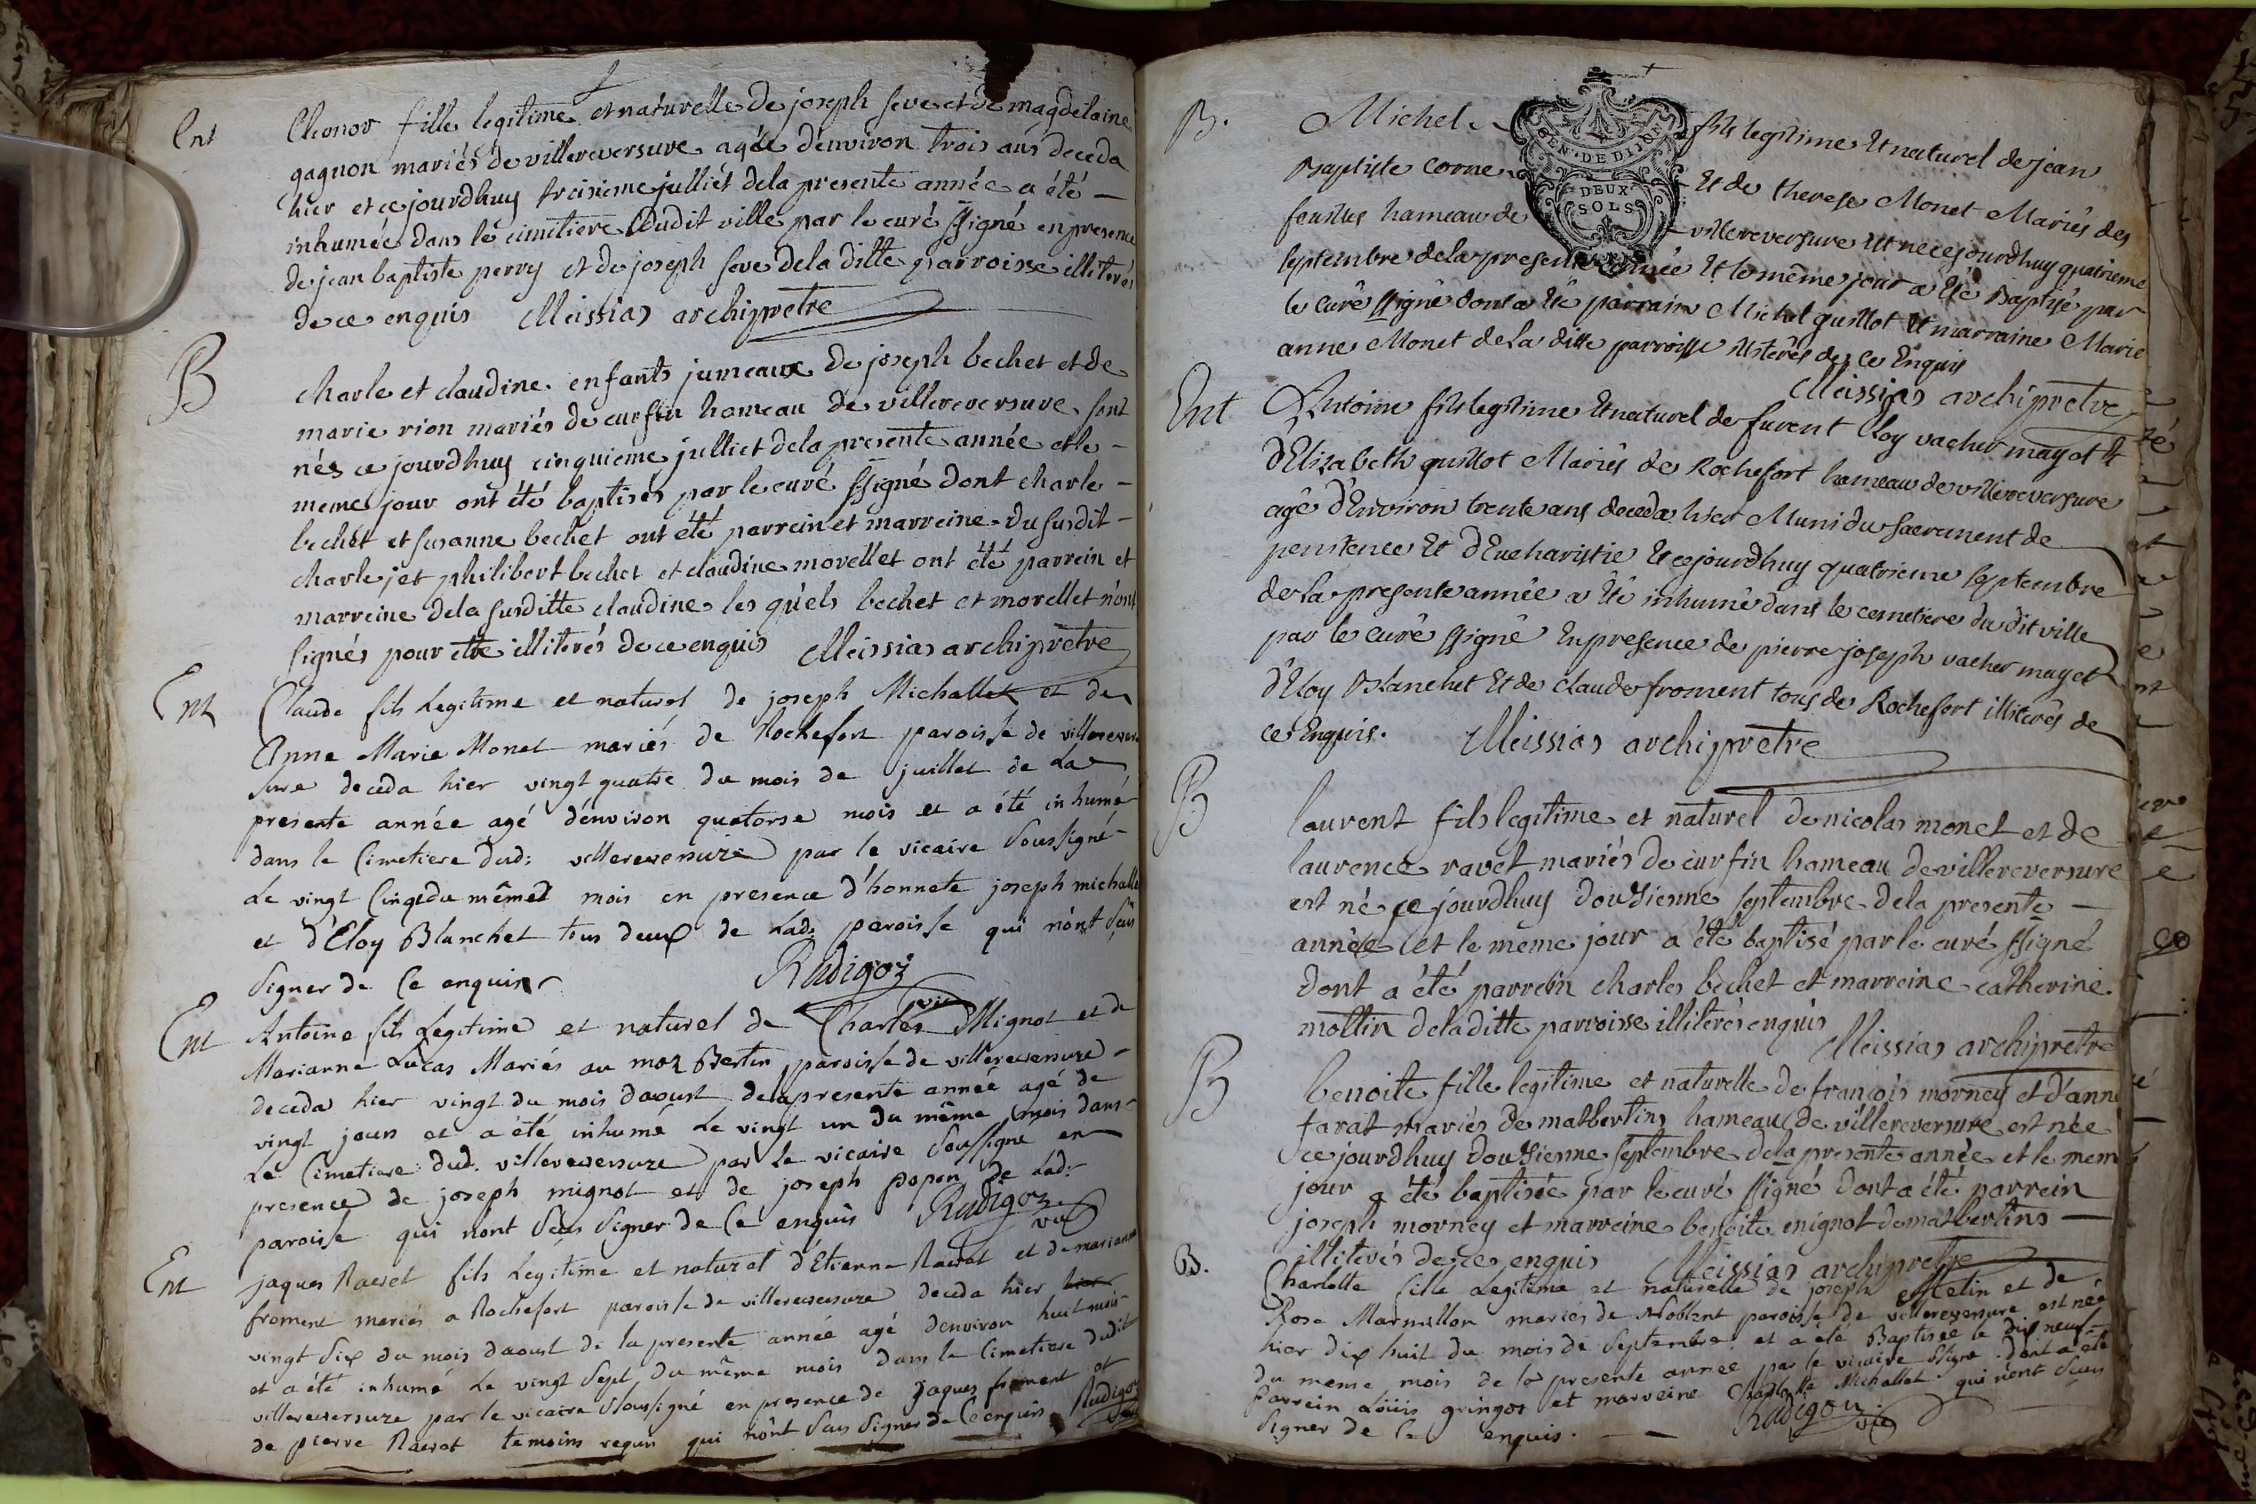 Ent
Eleonor fille legitime et naturelle de joseph seve et de magdelaine
gagnon mariés de villereversure agée denviron trois ans deceda
hier et ce jourdhuy treisieme julliet dela presente année a été —
inhumée dans le cimitiere dudit ville par le curé ssigné en presence
de jean baptiste perry et de joseph seve dela ditte parroisse illiterés
de ce enquis Meissias archiprêtre
B
charle et claudine enfants jumeaux de joseph bechet et de
marie rion mariés de curfin hameau de villereversure sont
nés ce jourdhuy cinquieme julliet dela presente année et le —
meme jour ont été baptisés par le curé ssigné dont charle —
bechet et susanne bechet ont été parrein et marreine du susdit —
charle, et philibert bechet et claudine morellet ont été parrein et
marreine dela susditte claudine les quels bechet et morellet n'ont
signés pour etre illiterés de ce enquis Meissias archiprêtre
Ent
Claude fils Legitime et naturel de joseph Michallet et de
Anne Marie Monet mariés de Rochefort paroisse de villerever
sure deceda hier vingt quatre du mois de juillet de la
presente année agé d'environ quatorse mois et a été inhumé
dans le Cimetiere dud: villereversure par le vicaire Soussigné —
Le vingt Cinq du même mois en presence d'honnete joseph michallet
et d'Eloy Blanchet tous deux de Lad: paroisse qui n'ont Sçus
Signer de Ce enquis Rudigoz
vic
Ent
Antoine fils Legitime et naturel de Charles Mignot et de
Marianne Lucas Mariés au maz Bertin paroisse de villereversure —
deceda hier vingt du mois daoust dela presente année agé de
vingt jours et a été inhumé Le vingt un du même mois dans
Le Cimetiere dud. villereversure par Le vicaire Soussigné en
presence de joseph mignot et de joseph popon de Lad:
paroisse qui nont Sçus Signer de Ce enquis Rudigoz
vic
Ent
jaques Ravet fils Legitime et naturel d'Etienne Ravet et de marianne
froment mariés a Rochefort paroisse de villereversure deceda hier hier
vingt Six du mois daoust de la presente année agé denviron huit mois
et a été inhumé Le vingt Sept du même mois dans Le Cimetiere dudit
villereversure par le vicaire Soussigné en presence de jaques froment et
de pierre Ravet temoins requis qui n'ont Sçus Signer de Ce enquis Rudigoz
B.
Michel fils legitime Et naturel de jean
GEN · DE DIJON
DEUX
SOLS
Baptiste corne Et de therese Monet Mariés des
feuilles hameau de villereversure Et né cejourdhuy quatrieme
septembre dela presente année Et le même jour a Eté Baptisé par
le Curé ssigné dont a Eté parrain Michel guillot Et marraine Marie
anne Monet dela ditte parroisse illiterés de ce Enquis
Meissias archiprêtre
Ent
Antoine fils legitime Et naturel de furent Eloy vacher mayet Et
d'Elizabeth guillot Mariés de Rochefort hameau de villereversure
agé d'Environ trente ans deceda hier Muni du sacrement de
penitence Et d'Eucharistie Et cejourdhuy quatrieme septembre
de la presente année a Eté inhumé dans le cemetiere dudit ville
par le curé ssigné En presence de pierre joseph vacher mayet
d'Eloy Blanchet Et de claude froment tous de Rochefort illiterés de
ce Enquis. Meissias archiprêtre
B
laurent fils legitime et naturel de nicolas monet et de
laurence ravet mariés de curfin hameau de villereversure
est né ce jourdhuy dousienne septembre dela presente —
année et le même jour a été baptisé par le curé ssigné
dont a été parrein charles bechet et marreine catherine
mollin dela ditte parroisse illiterés enquis
Meissias archiprêtre
B
benoite fille legitime et naturelle de françois morney et d'anne
farat mariés de matbertins hameau de villereversure est née
ce jourdhuy dousienne septembre dela presente année et le meme
jour a été baptisée par le curé ssigné dont a été parrein
joseph morney et marreine benoite mignot de matbertins —
illiterés de ce enquis Meissias archiprêtre
B.
Charlotte fille Legitime et naturelle de joseph et de
Rose Marmillon mariés de Noblent paroisse de villereversure est née
hier dix huit du mois de Septembre et a été Baptisée le dix neuf
du meme mois de la presente année par le vicaire Ssigné dont a été
parrein Loüis gringoz et marreine Charlotte Michallet qui n'ont Sçus
Signer de Ce enquis. Rudigoz
vic